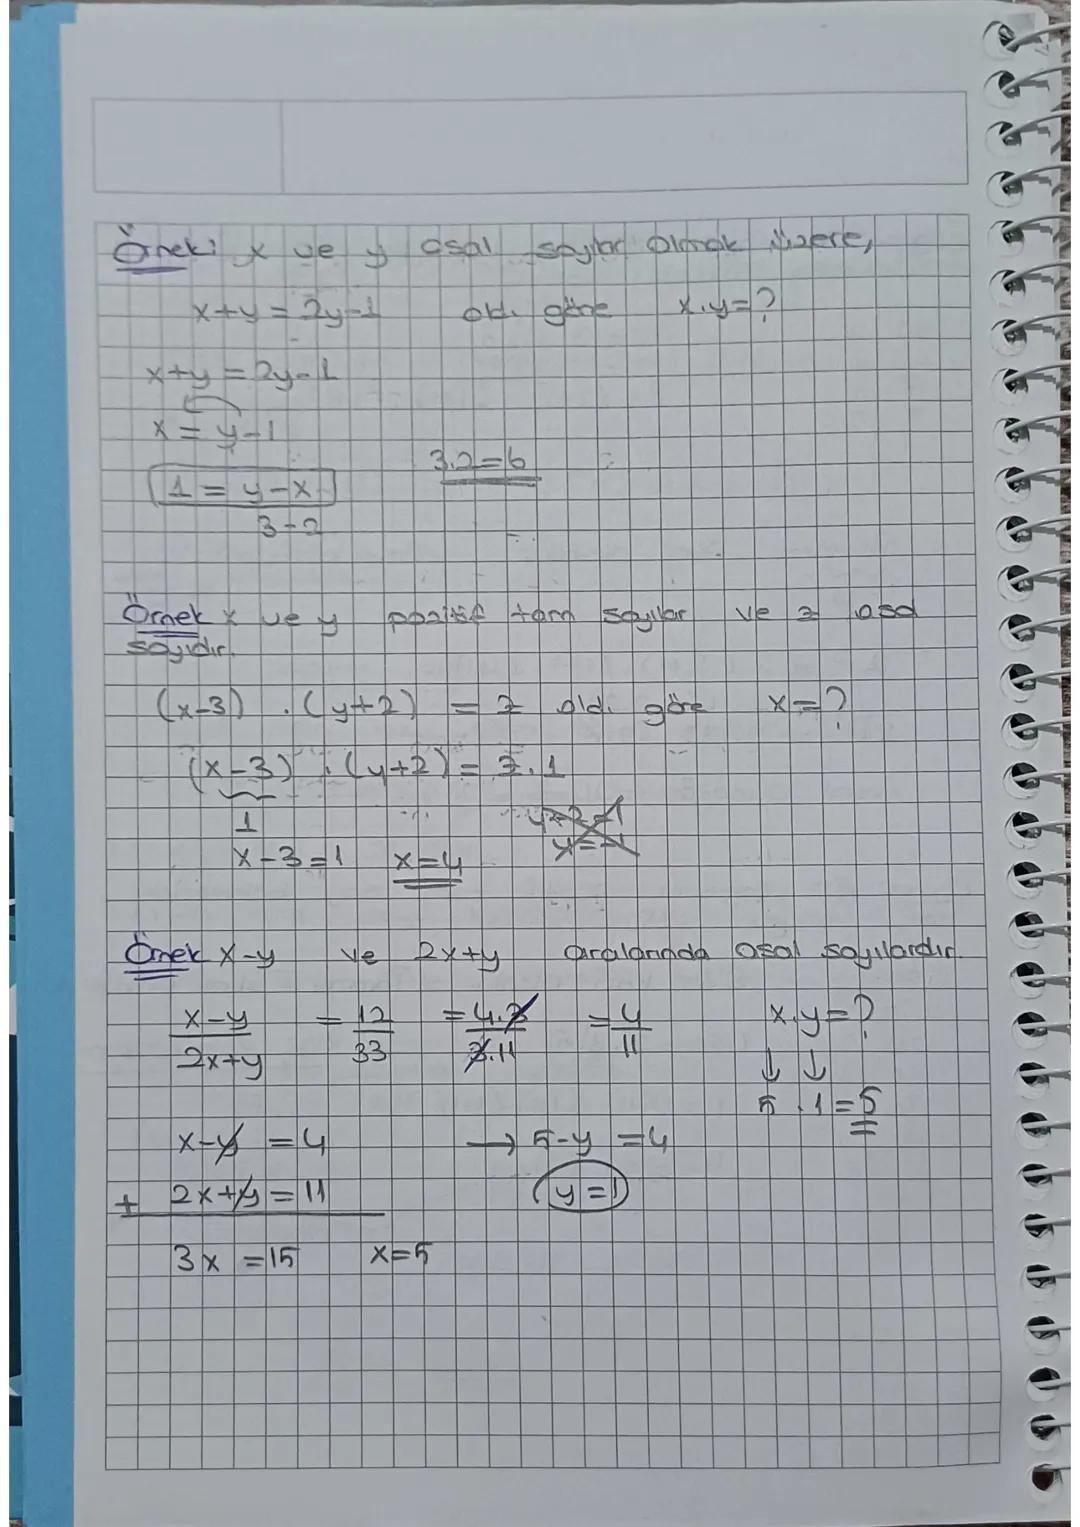 Örnek: x ve y asal sayılar olmak üzere,
x+y = 2y-1 old. göre x.y=?
x+y = 2y-1
x = y-1
1 = y-x
3-2
3.2=6
Örnek x ve y pozitif tam sayılar ve z asal
sayıdır.
(x-3) . (y+2) = z old. göre x=?
(x-3) . (y+2) = z.1
1
x-3=1 x=4
y+2=1
y=-1
Örnek x-y ve 2x+y aralarında asal sayılardır.
x-y/2x+y = 12/33 = 4.3/3.11 = 4/11 x.y=?
↓ ↓
5 . 1 = 5
x-y = 4 → 5-y = 4
+ 2x+y = 11 y=1
3x = 15 x=5